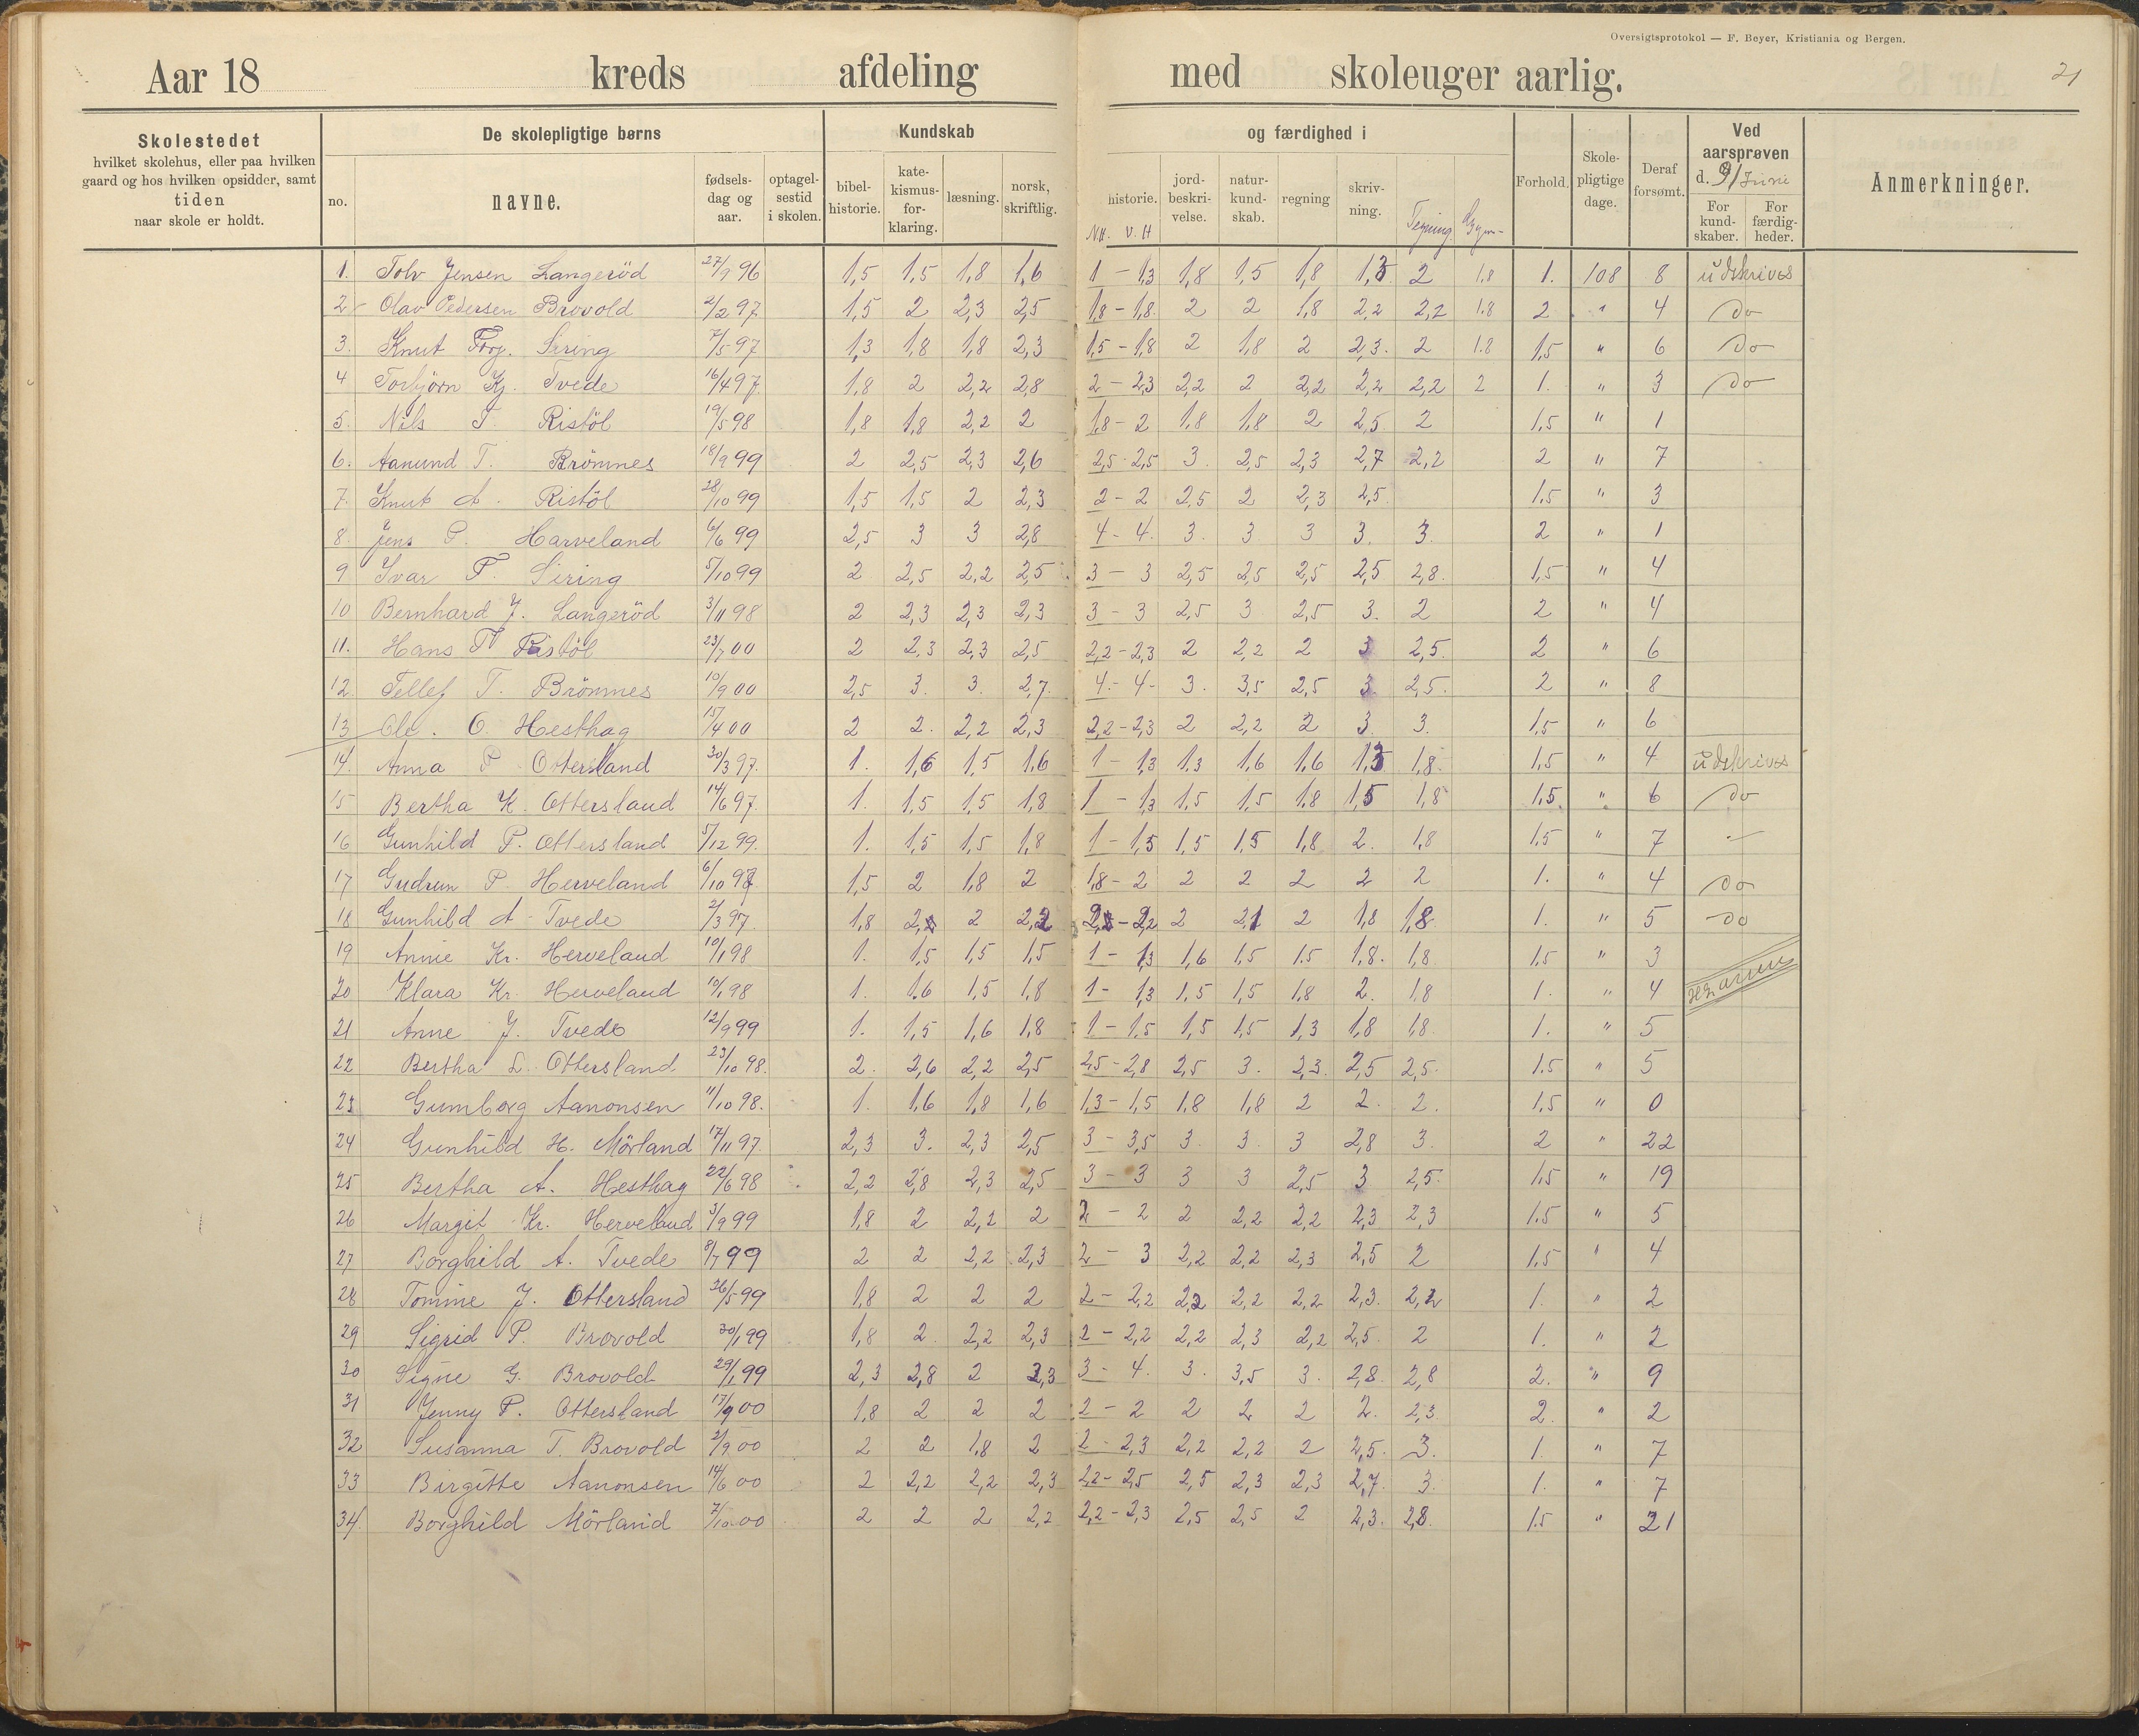 Oversigtsprotokol — F. Beyer, Kristiania og Bergen.
21
Aar 18 kreds afdeling med skoleuger aarlig.
Skolestedet hvilket skolehus, eller paa hvilken gaard og hos hvilken opsidder, samt tiden naar skole er holdt.
De skolepligtige børns
no. navne. fødsels-dag og aar. optagel-sestid i skolen.
Kundskab og færdighed i
bibel-historie. kate-kismus-for-klaring. læsning. norsk, skriftlig. historie. N.H. V.H jord-beskri-velse. natur-kund-skab. regning skriv-ning. Tegning Gym-
Forhold. Skole-pligtige dage. Deraf forsømt. Ved aarsprøven d. 9/ Juni For kund-skaber. For færdig-heder. Anmerkninger.
1. Tolv Jensen Langeröd 27/9 96 1,5 1,5 1,8 1,6 1 - 1,3 1,8 1,5 1,8 1,3 2 1,8 1. 108 8 udskrives
2 Olav Pedersen Brovold 2/2 97 1,5 2 2,3 2,5 1,8 - 1,8 2 2 1,8 2,2 2,2 1.8 2 " 4 do
3. Knut Torj. Siring 7/5 97 1,3 1,8 1,8 2,3 1,5 - 1,8 2 1,8 2 2,3. 2 1.8 1,5 " 6 do
4 Torbjörn Kj. Tvede 16/4 97 1,8 2 2,2 2,8 2 - 2,3 2,2 2 2,2 2,2 2,2 2 1. " 3 do
5. Nils T. Ristöl 19/5 98 1,8 1,8 2,2 2 1,8 - 2 1,8 1,8 2 2,5 2 1,5 " 1
6. Aanund T. Brömnes 18/9 99 2 2,5 2,3 2,6 2,5 - 2,5 3. 2,5 2,3 2,7 2,2 2 " 7
7. Knut A. Ristöl 28/10 99 1,5 1,5 2 2,3 2 - 2 2,5 2 2,3 2,5 1,5 " 3
8. Jens P. Harveland 6/6 99 2,5 3 3 2,8 4 - 4. 3. 3 3 3. 3. 2 " 1
9 Ivar T. Siring 5/10 99 2 2,5 2,2 2,5 3 - 3 2,5 2,5 2,5 2,5 2,8. 1,5 " 4
10 Bernhard J. Langeröd 3/11 98 2 2,3 2,3 2,3 3 - 3 2,5 3 2,5 3. 2 2 " 4
11. Hans T Ristöl 23/7 00 2 2,3 2,3 2,5 2,2 - 2,3 2 2,2 2 3 2,5. 2 " 6
12. Tellef T. Brömnes 10/9 00 2,5 3. 3. 2,7. 4. - 4 - 3. 3,5 2,5 3 2,5. 2 " 8
13 Ole. O. Hesthag 15/4 00 2 2. 2,2 2,3 2,2 - 2,3 2 2,2 2 3. 3. 1,5 " 6
14. Anna P. Ottersland 30/3 97. 1. 1,6 1,5 1,6 1 - 1,3 1,3 1,6 1,6 1,3 1,8. 1,5 " 4 udskrives
15 Bertha K. Ottersland 14/6 97. 1. 1,5 1,5 1,8 1 - 1,3 1,5 1,5 1,8 1,5 1,8 1,5. " 6 do
16 Gunhild P. Ottersland 5/12 99. 1. 1,5 1,5 1,8 1 - 1,5 1,5 1,5 1,8 2. 1,8 1,5 " 7 -
17 Gudrun P. Herveland 6/10 97 1,5 2 1,8 2 1,8 - 2 2 2 2 2 2 1. " 4 do
18 Gunhild A - Tvede 2/3 97. 1,8 2 2,2 2,2 2 1,8 1,8 1. " 5 do
19 Annie Kr. Herveland 10/1 98 1. 1,5 1,5 1,5 1 - 1,3 1,6 1,5 1.5 1,8. 1,8 1,5 " 3
20 Klara Kr. Herveland 10/1 98 1. 1.6 1,5 1,8 1 - 1,3 1,5 1,5 1,8 2. 1,8 1. " 4
21 Anne J. Tvede 12/9 99 1. 1,5 1,6 1,8 1 - 1,5 1,5 1,5 1,3 1,8 1,8. 1. " 5
22 Bertha L. Ottersland 23/10 98. 2. 2,6 2,2 2,5 2,5 - 2,8 2,5 3. 2,3. 2,5 2,5. 1.5 " 5
23 Gumborg Aanonsen 11/10 98. 1. 1,6 1,8 1,6 1,3 - 1,5 1,8 1,8 2 2. 2. 1,5 " 0
24 Gunhild H. Mörland 17/11 97. 2,3 3. 2,3 2,5 3 - 3,5 3 3 3 2,8 3. 2 " 22
25 Bertha A. Hesthag 22/6 98 2,2 2,8 2,3 2,5 3 - 3 3 3 2,5 3 2,5. 1,5 " 19
26 Margit Kr. Herveland 3/9 99 1,8 2 2,2 2 2 - 2 2 2,2 2,2 2,3 2,3 1.5 " 5
27 Borghild A. Tvede 8/7 99 2 2 2,2 2,3 2 - 3 2,2 2,2 2,3 2,5 2 1,5 " 4
28 Tomine J. Ottersland 26/5 99 1,8 2 2 2 2 - 2,2 2,2 2,2 2,2 2,3. 2,2 1. " 2
29 Sigrid P. Brovold 30/1 99 1,8 2. 2,2 2,3 2 - 2,2 2,2 2,3 2,2 2,5. 2 1. " 2
30 Signe G. Brovold 29/1 99 2,3 2,8 2 2,3 3 - 4. 3. 3,5 3. 2,8. 2,8 2. " 9
31 Jenny P. Ottersland 17/9 00 1,8 2 2 2 2 - 2 2 2 2 2. 2,3 2. " 2
32 Susanna T. Brovold 2/9 00 2 2 1,8 2 2 - 2,3 2,2 2,2 2 2,5. 3. 1. " 7
33 Birgitte Aanonsen 14/6 00 2 2,2 2,2 2,3 2,2 - 2,5 2,5 2,3 2,3 2,7. 3. 1. " 7
34 Borghild Mörland 7/10 00 2 2 2 2,2 2,2 - 2,3 2,5 2,5 2 2,3. 2,8. 1.5 " 21